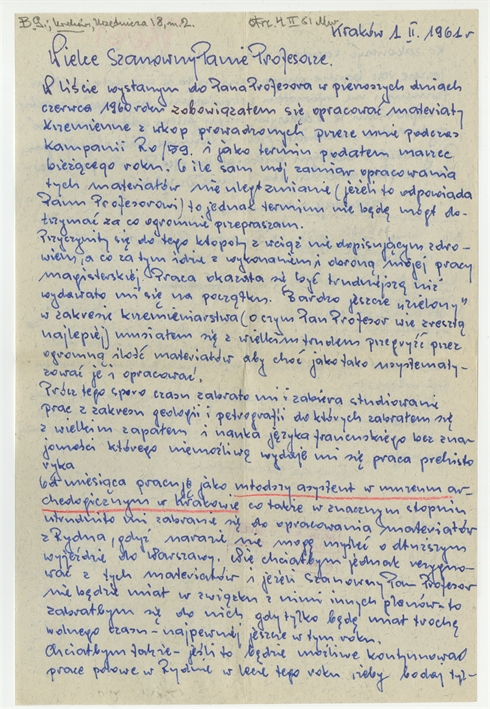 B.G., Kraków, Urzędnicza 18, m.2.
Otrz. 4 II 61
Kraków 1 II. 1961 r
Wielce Szanowny Panie Profesorze.
W liście wysłanym do Pana Profesora w pierwszych dniach
czerwca 1960 roku zobowiązałem się opracować materiały
krzemienne z wkop prowadzonych przeze mnie podczas
kampanii Ro/59. i jako termin podałem marzec
bieżącego roku. O ile sam mój zamiar opracowania
tych materiałów nie uległ zmianie (jeżeli to odpowiada
Panu Profesorowi) to jednak terminu nie będę mógł do-
trzymać za co ogromnie przepraszam.
Przyczyniły się do tego kłopoty z wciąż nie dopisującym zdro-
wiem, a co za tym idzie z wykonaniem i obroną mojej pracy
magisterskiej. Praca okazała się być trudniejszą niż
wydawało mi się na początku. Bardzo jeszcze "zielony"
w zakresie krzemieniarstwa (o czym Pan Profesor wie zresztą
najlepiej) musiałem się z wielkim trudem przegryźć przez
ogromną ilość materiałów aby choć jako tako usystematy-
zować je i opracować.
Prócz tego sporo czasu zabrało mi i zabiera studiowanie
prac z zakresu geologii i petrografii do których zabrałem się
z wielkim zapałem i nauka języka francuskiego bez zna-
jomości którego niemożliwą wydaje mi się praca prehisto
ryka
Od miesiąca pracuję jako młodszy asystent w muzeum ar-
cheologicznym w Krakowie co także w znacznym stopniu
utrudniło mi zabranie się do opracowania materiałów
z Rydna, gdyż narazie nie mogę myśleć o dłuższym
wyjeździe do Warszawy. Nie chciałbym jednak rezygno-
wać z tych materiałów i jeżeli Szanowny Pan Profesor
nie będzie miał w związku z nimi innych planów - to
zabrałbym się do nich, gdy tylko będę miał trochę
wolnego czasu - najpewniej jeszcze w tym roku.
Chciałbym także - jeśli to będzie możliwe kontynuować
prace polowe w Rydnie w lecie tego roku żeby bodaj tyl-